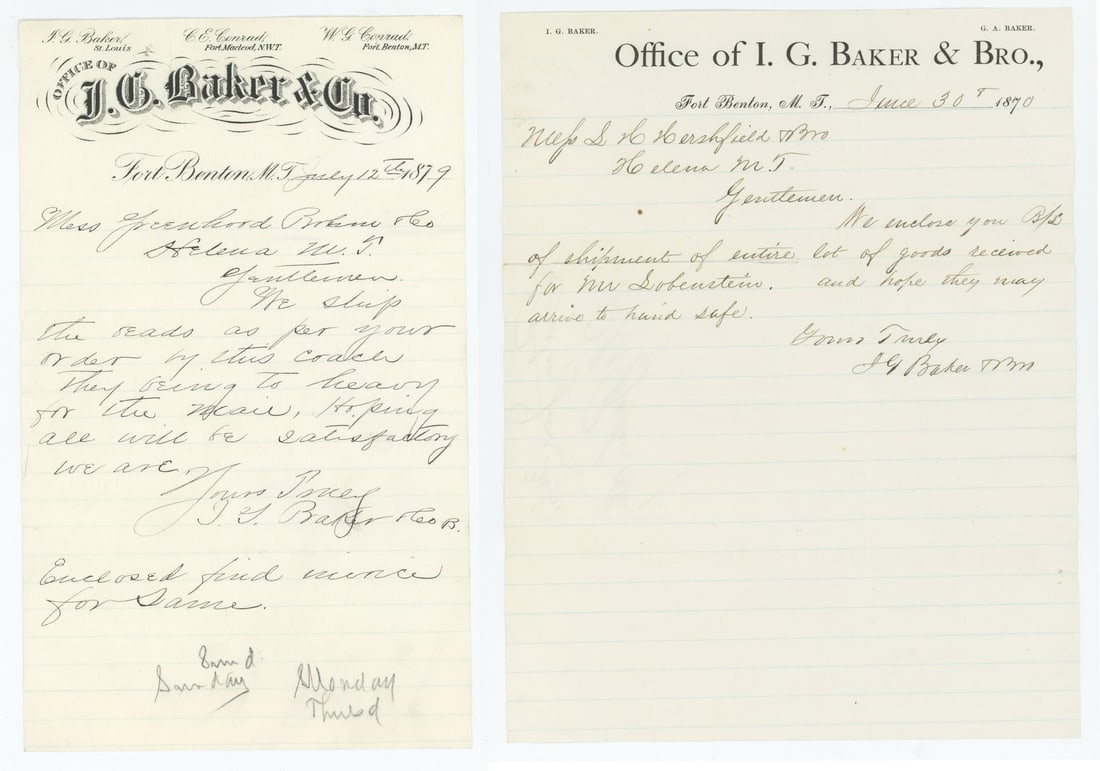 I. G. Baker,
St. Louis
C. E. Conrad,
Fort Macleod, N.W.T.
W. G. Conrad,
Fort Benton, M.T.
OFFICE OF
I. G. Baker & Co.
Fort Benton, M.T. July 12th 1879
Mess Greenhood Bohm & Co
Helena M. T.
Gentlemen.
We ship
the beads as per your
order by this coach
they being to heavy
for the mail, Hoping
all will be satisfactory
we are,
Yours Truly
I. G. Baker & Co B.
Enclosed find invoice
for Same.
Sunday
Monday
Thursd
I. G. BAKER.
G. A. BAKER.
Office of I. G. BAKER & BRO.,
Fort Benton, M. T., June 30th 1870
Mess L H Hershfield & Bro
Helena M T.
Gentlemen.
We enclose you B/L
of shipment of entire lot of goods received
for Mr Lobenstein. and hope they may
arrive to hand safe.
Yours Truly
I G Baker & Bro